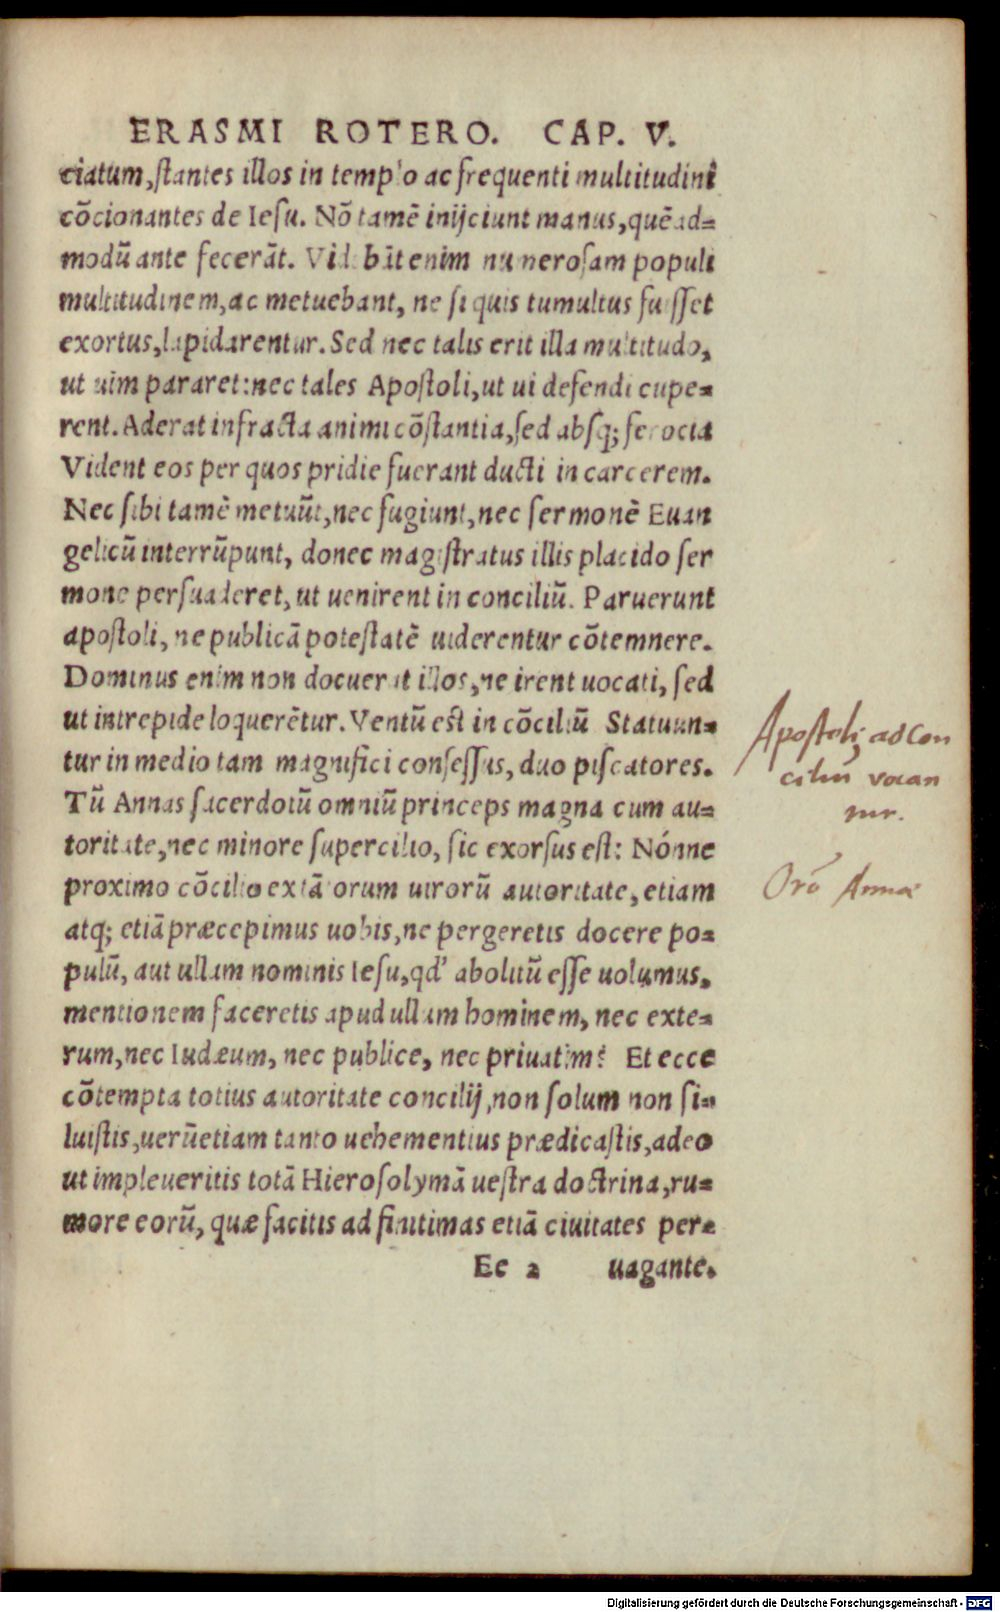 ERASMI ROTERO. CAP. V.
ciatum, stantes illos in templo ac frequenti multitudini
cōcionantes de Iesu. Nō tamē inijciunt manus, quēad=
modū ante fecerāt. Videbāt enim numerosam populi
multitudinem, ac metuebant, ne si quis tumultus fuisset
exortus, lapidarentur. Sed nec talis erit illa multitudo,
ut uim pararet: nec tales Apostoli, ut ui defendi cupe=
rent. Aderat infracta animi cōstantia, sed absq; ferocia
Vident eos per quos pridie fuerant ducti in carcerem.
Nec sibi tamē metuūt, nec fugiunt, nec sermonē Euan
gelicū interrūpunt, donec magistratus illis placido ser
mone persuaderet, ut uenirent in conciliū. Paruerunt
apostoli, ne publicā potestatē uiderentur cōtemnere.
Dominus enim non docuerat illos, ne irent uocati, sed
ut intrepide loquerētur. Ventū est in cōciliū Statuun=
tur in medio tam magnifici consessus, duo piscatores.
Tū Annas sacerdotū omniū princeps magna cum au=
toritate, nec minore supercilio, sic exorsus est: Nónne
proximo cōcilio extātorum uirorū autoritate, etiam
atq; etiā præcepimus uobis, ne pergeretis docere po=
pulū, aut ullam nominis Iesu, qd' abolitū esse uolumus,
mentionem faceretis apud ullum hominem, nec exte=
rum, nec Iudæum, nec publice, nec priuatim? Et ecce
cōtempta totius autoritate concilij, non solum non si=
luistis, uerūetiam tanto uehementius prædicastis, adeo
ut impleueritis totā Hierosolymā uestra doctrina, ru=
more eorū, quæ facitis ad finitimas etiā ciuitates per=
Ee 2 uagante.
Apostoli ad con
ciliū vocan
tur.
Orō Annæ
Digitalisierung gefördert durch die Deutsche Forschungsgemeinschaft - DFG